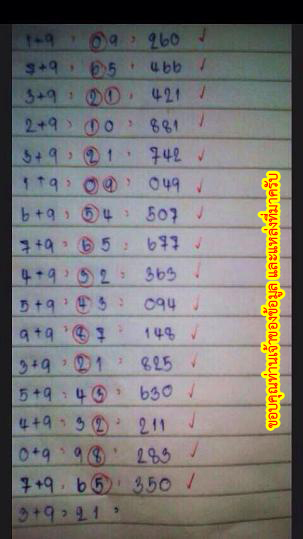 1+9 = 09 = 260 ✓
7+9 = 65 = 466 ✓
3+9 = 21 = 421 ✓
2+9 = 10 = 881 ✓
3+9 = 21 = 742 ✓
1+9 = 09 = 049 ✓
6+9 = 54 = 507 ✓
7+9 = 65 = 677 ✓
4+9 = 32 = 363 ✓
5+9 = 43 = 094 ✓
9+9 = 87 = 148 ✓
3+9 = 21 = 825 ✓
5+9 = 43 = 630 ✓
4+9 = 32 = 211 ✓
0+9 = 98 = 283 ✓
7+9 = 65 = 350 ✓
3+9 = 21 =
ขอบคุณท่านเจ้าของข้อมูล และแหล่งที่มาครับ